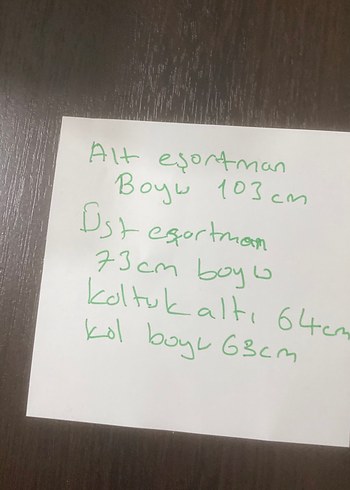 Alt eşortman
Boyu 103 cm
Üst eşortman
73 cm boyu
koltuk altı 64cm
kol boyu 63cm